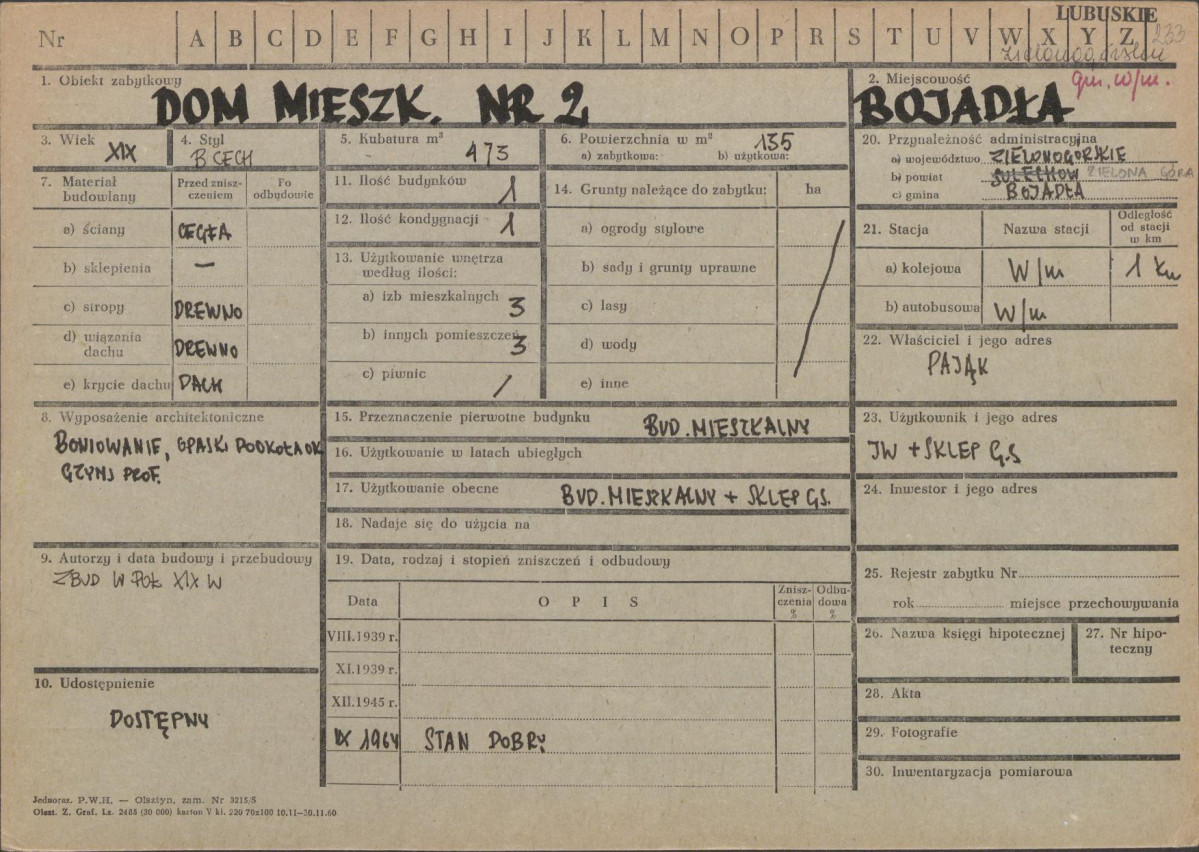 LUBUSKIE
Nr A B C D E F G H I J K L M N O P R S T U V W X Y Z 233
zielonogórskie
1. Obiekt zabytkowy
DOM MIESZK. NR 2
2. Miejscowość
gm. w/m.
BOJADŁA
3. Wiek
XIX
4. Styl
B CECH
5. Kubatura m³
473
6. Powierzchnia w m²
135
a) zabytkowa: b) użytkowa:
20. Przynależność administracyjna
a) województwo ZIELONOGÓRSKIE
b) powiat SULECHÓW ZIELONA GÓRA
c) gmina BOJADŁA
7. Materiał budowlany
Przed zniszczeniem
Po odbudowie
a) ściany CEGŁA
b) sklepienia —
c) stropy DREWNO
d) wiązania dachu DREWNO
e) krycie dachu DACH
11. Ilość budynków 1
12. Ilość kondygnacji 1
13. Użytkowanie wnętrza
według ilości:
a) izb mieszkalnych 3
b) innych pomieszczeń 3
c) piwnic /
14. Grunty należące do zabytku: ha
a) ogrody stylowe
b) sady i grunty uprawne
c) lasy
d) wody
e) inne
21. Stacja Nazwa stacji Odległość od stacji w km
a) kolejowa W/m 1 km
b) autobusowa W/m
22. Właściciel i jego adres
PAJĄK
8. Wyposażenie architektoniczne
BONIOWANIE, OPASKI DOOKOŁA OK
GZYMS PROF.
15. Przeznaczenie pierwotne budynku BUD. MIESZKALNY
16. Użytkowanie w latach ubiegłych
17. Użytkowanie obecne BUD. MIESZKALNY + SKLEP GS.
18. Nadaje się do użycia na
23. Użytkownik i jego adres
JW + SKLEP G.S
24. Inwestor i jego adres
9. Autorzy i data budowy i przebudowy
ZBUD W POŁ XIX W
19. Data, rodzaj i stopień zniszczeń i odbudowy
Data OPIS Zniszczenia % Odbudowa %
VIII.1939 r.
XI.1939 r.
XII.1945 r.
IX 1964 STAN DOBRY
25. Rejestr zabytku Nr
rok miejsce przechowywania
26. Nazwa księgi hipotecznej
27. Nr hipoteczny
10. Udostępnienie
DOSTĘPNY
28. Akta
29. Fotografie
30. Inwentaryzacja pomiarowa
Jednoraz. P.W.H. — Olsztyn, zam. Nr 3215/S
Olszt. Z. Graf. Lz. 2488 (30 000) karton V kl. 220 70x100 10.11—30.11.60